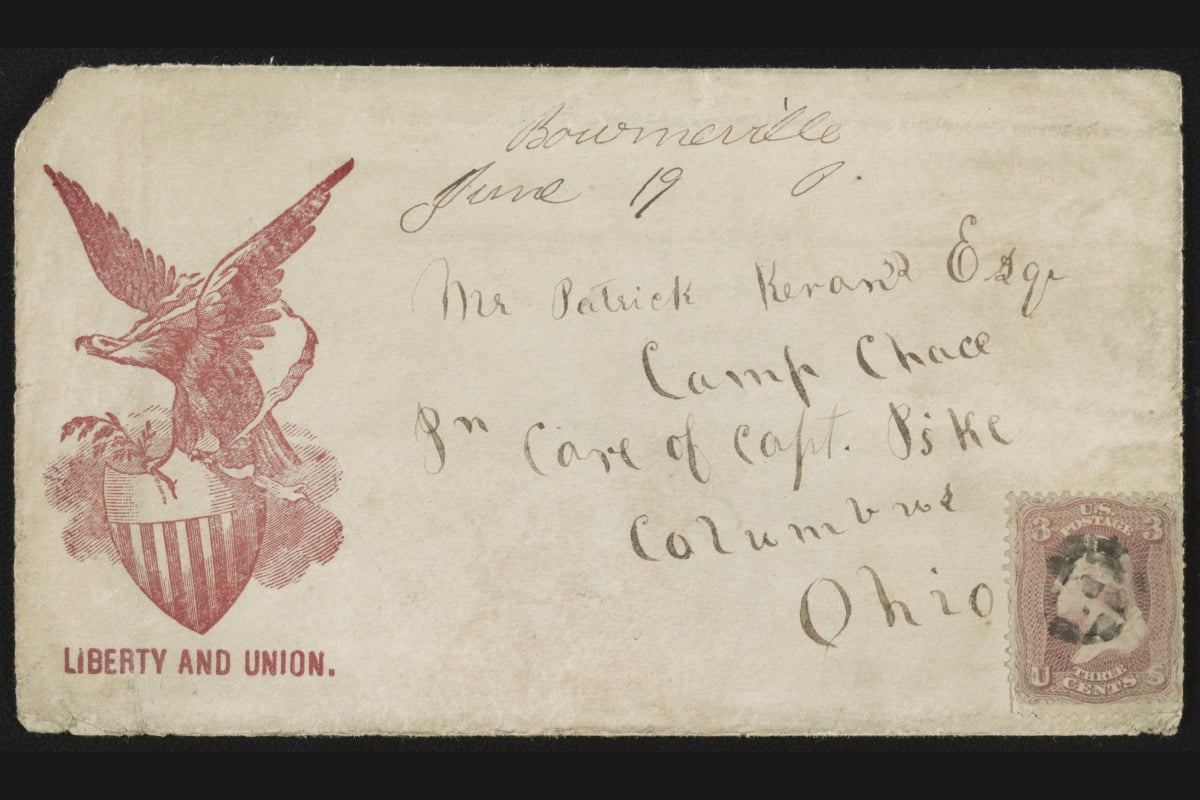 Bourneville
June 19 O.
Mr Patrick Kerans Esqr
Camp Chace
In Care of Capt. Pike
Columbus
Ohio
LIBERTY AND UNION.
3 U.S. 3
POSTAGE
U THREE S
CENTS